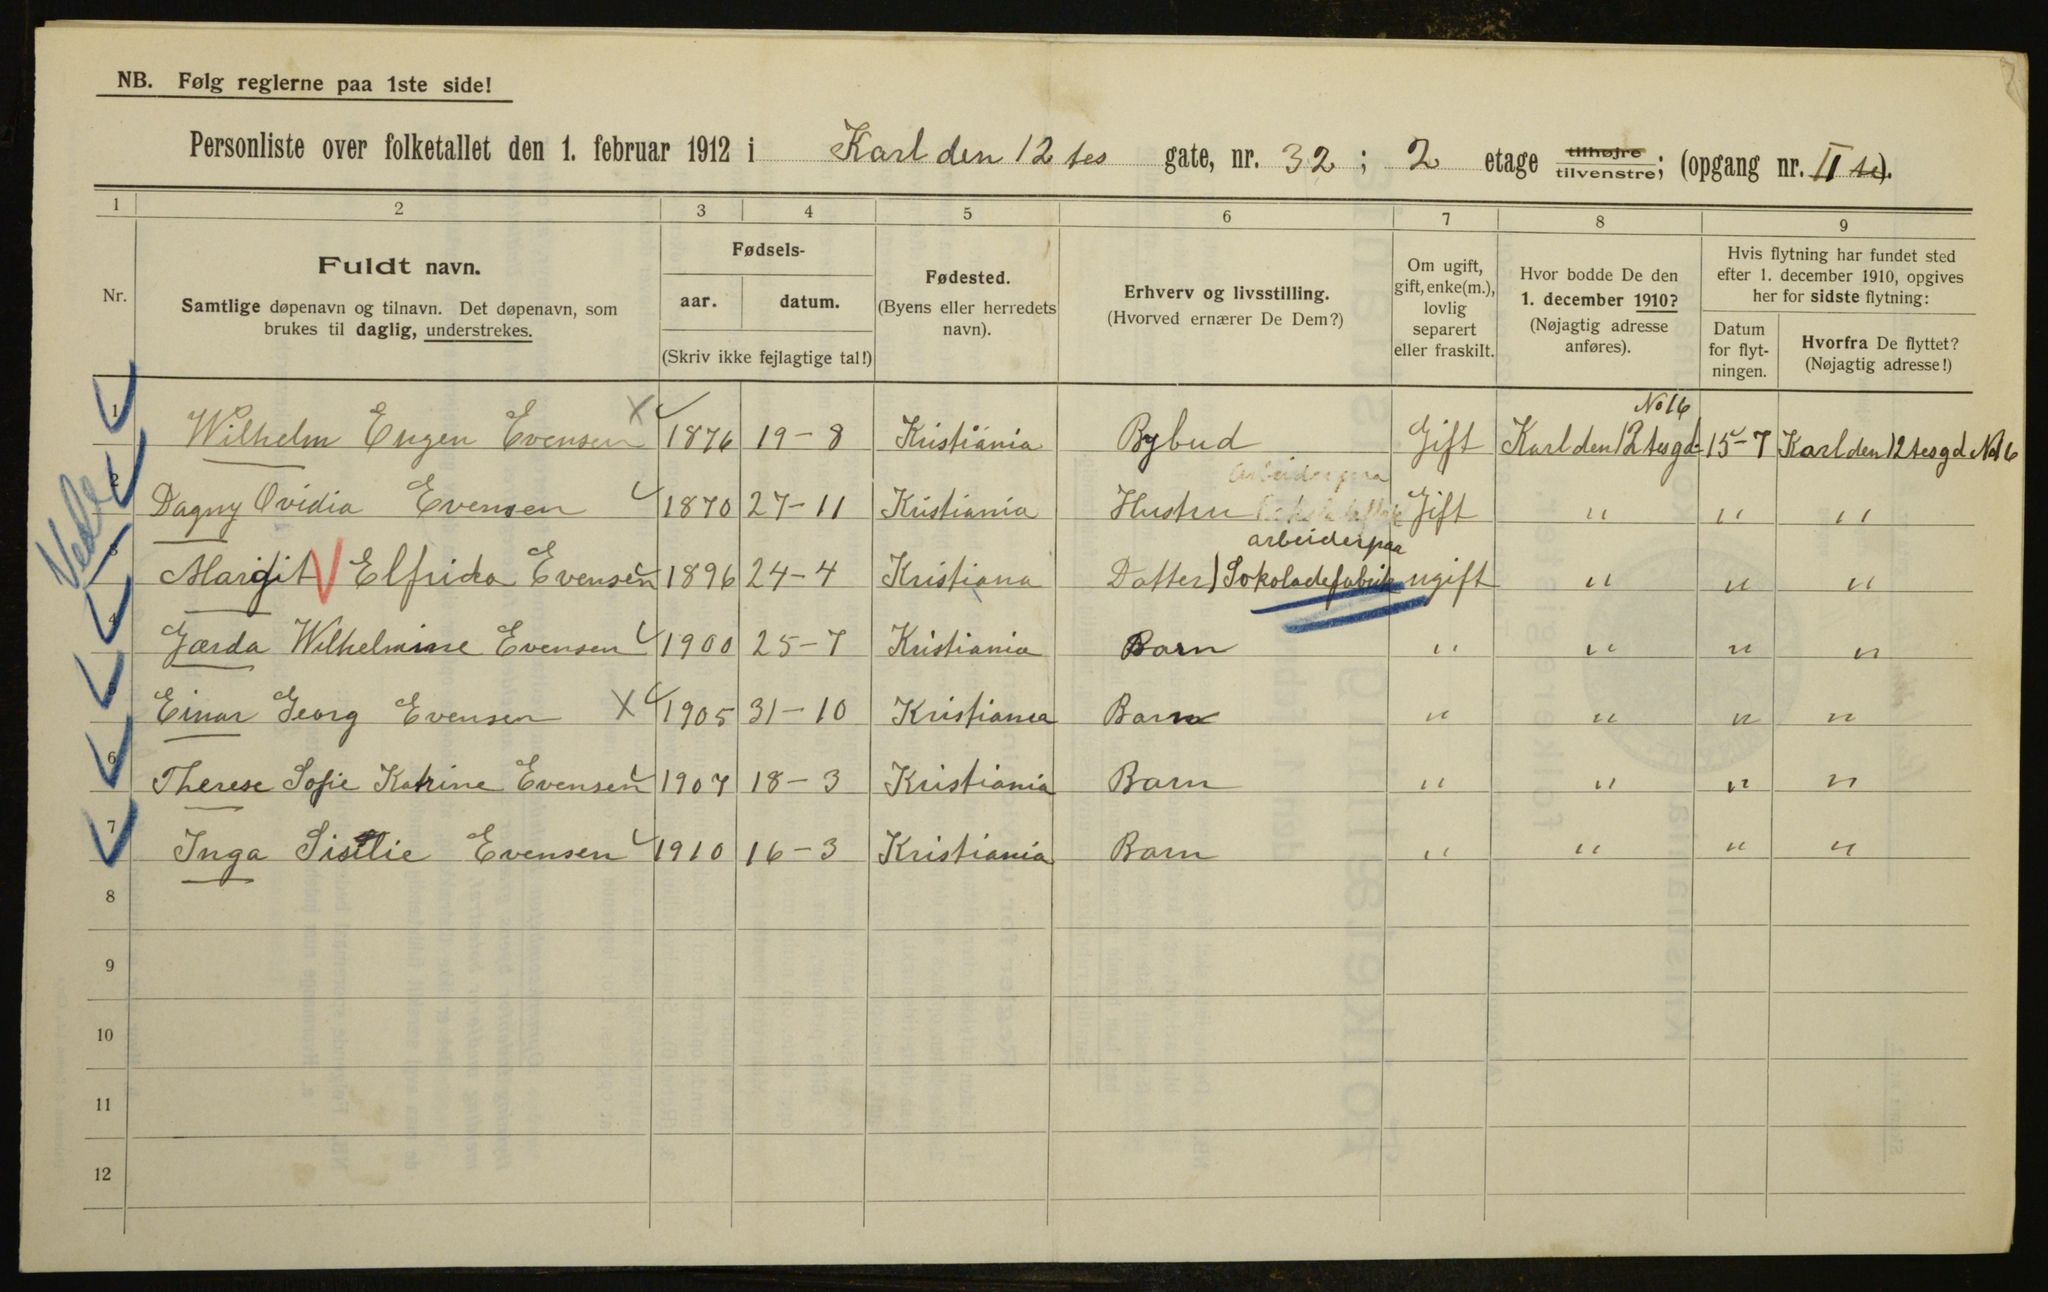 NB. Følg reglerne paa 1ste side!
Personliste over folketallet den 1. februar 1912 i Karl den 12 tes gate, nr. 32 ; 2 etage tilhøjre tilvenstre; (opgang nr. II te).
1 2 3 4 5 6 7 8 9
Nr.
Fuldt navn.
Samtlige døpenavn og tilnavn. Det døpenavn, som
brukes til daglig, understrekes.
Fødsels-
aar. datum.
(Skriv ikke fejlagtige tal!)
Fødested.
(Byens eller herredets
navn).
Erhverv og livsstilling.
(Hvorved ernærer De Dem?)
Om ugift,
gift, enke(m.),
lovlig
separert
eller fraskilt.
Hvor bodde De den
1. december 1910?
(Nøjagtig adresse
anføres).
Hvis flytning har fundet sted
efter 1. december 1910, opgives
her for sidste flytning:
Datum
for flyt-
ningen.
Hvorfra De flyttet?
(Nøjagtig adresse!)
No 16
1 Wilhelm Eugen Evensen X 1876 19-8 Kristiania Bybud Gift Karl den 12 tes gd. 15-7 Karl den 12 tes gd No 16
arbeider paa
2 Dagny Ovidia Evensen 1870 27-11 Kristiania Hustru Gift " " "
arbeider paa
3 Margit Elfrida Evensen 1896 24-4 Kristiana Datter) Sokoladefabrik ugift " " "
4 Gjærda Wilhelmine Evensen 1900 25-7 Kristiania Barn " " " "
5 Einar Georg Evensen X 1905 31-10 Kristiania Barn " " " "
6 Therese Sofie Katrine Evensen 1907 18-3 Kristiania Barn " " " "
7 Inga Evensen 1910 16-3 Kristiania Barn " " " "
8
9
10
11
12